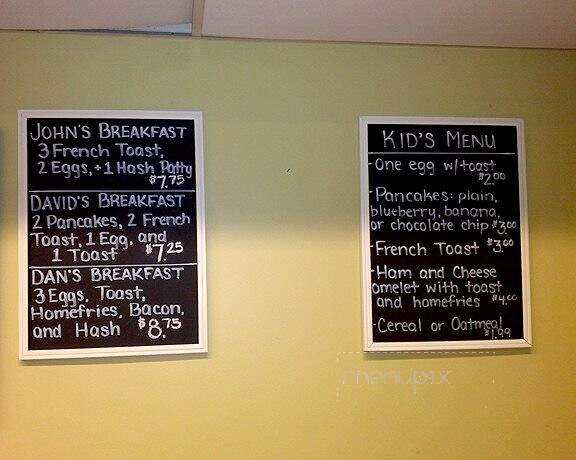 JOHN'S BREAKFAST
3 French Toast,
2 Eggs, + 1 Hash Patty
$7.75
DAVID'S BREAKFAST
2 Pancakes, 2 French
Toast, 1 Egg, and
1 Toast $7.25
DAN'S BREAKFAST
3 Eggs, Toast,
Homefries, Bacon,
and Hash $8.75
KID'S MENU
-One egg w/toast
$2.00
-Pancakes: plain,
blueberry, banana,
or chocolate chip $3.00
-French Toast $3.00
-Ham and Cheese
omelet with toast
and homefries $4.00
-Cereal or Oatmeal
$1.99
menupix